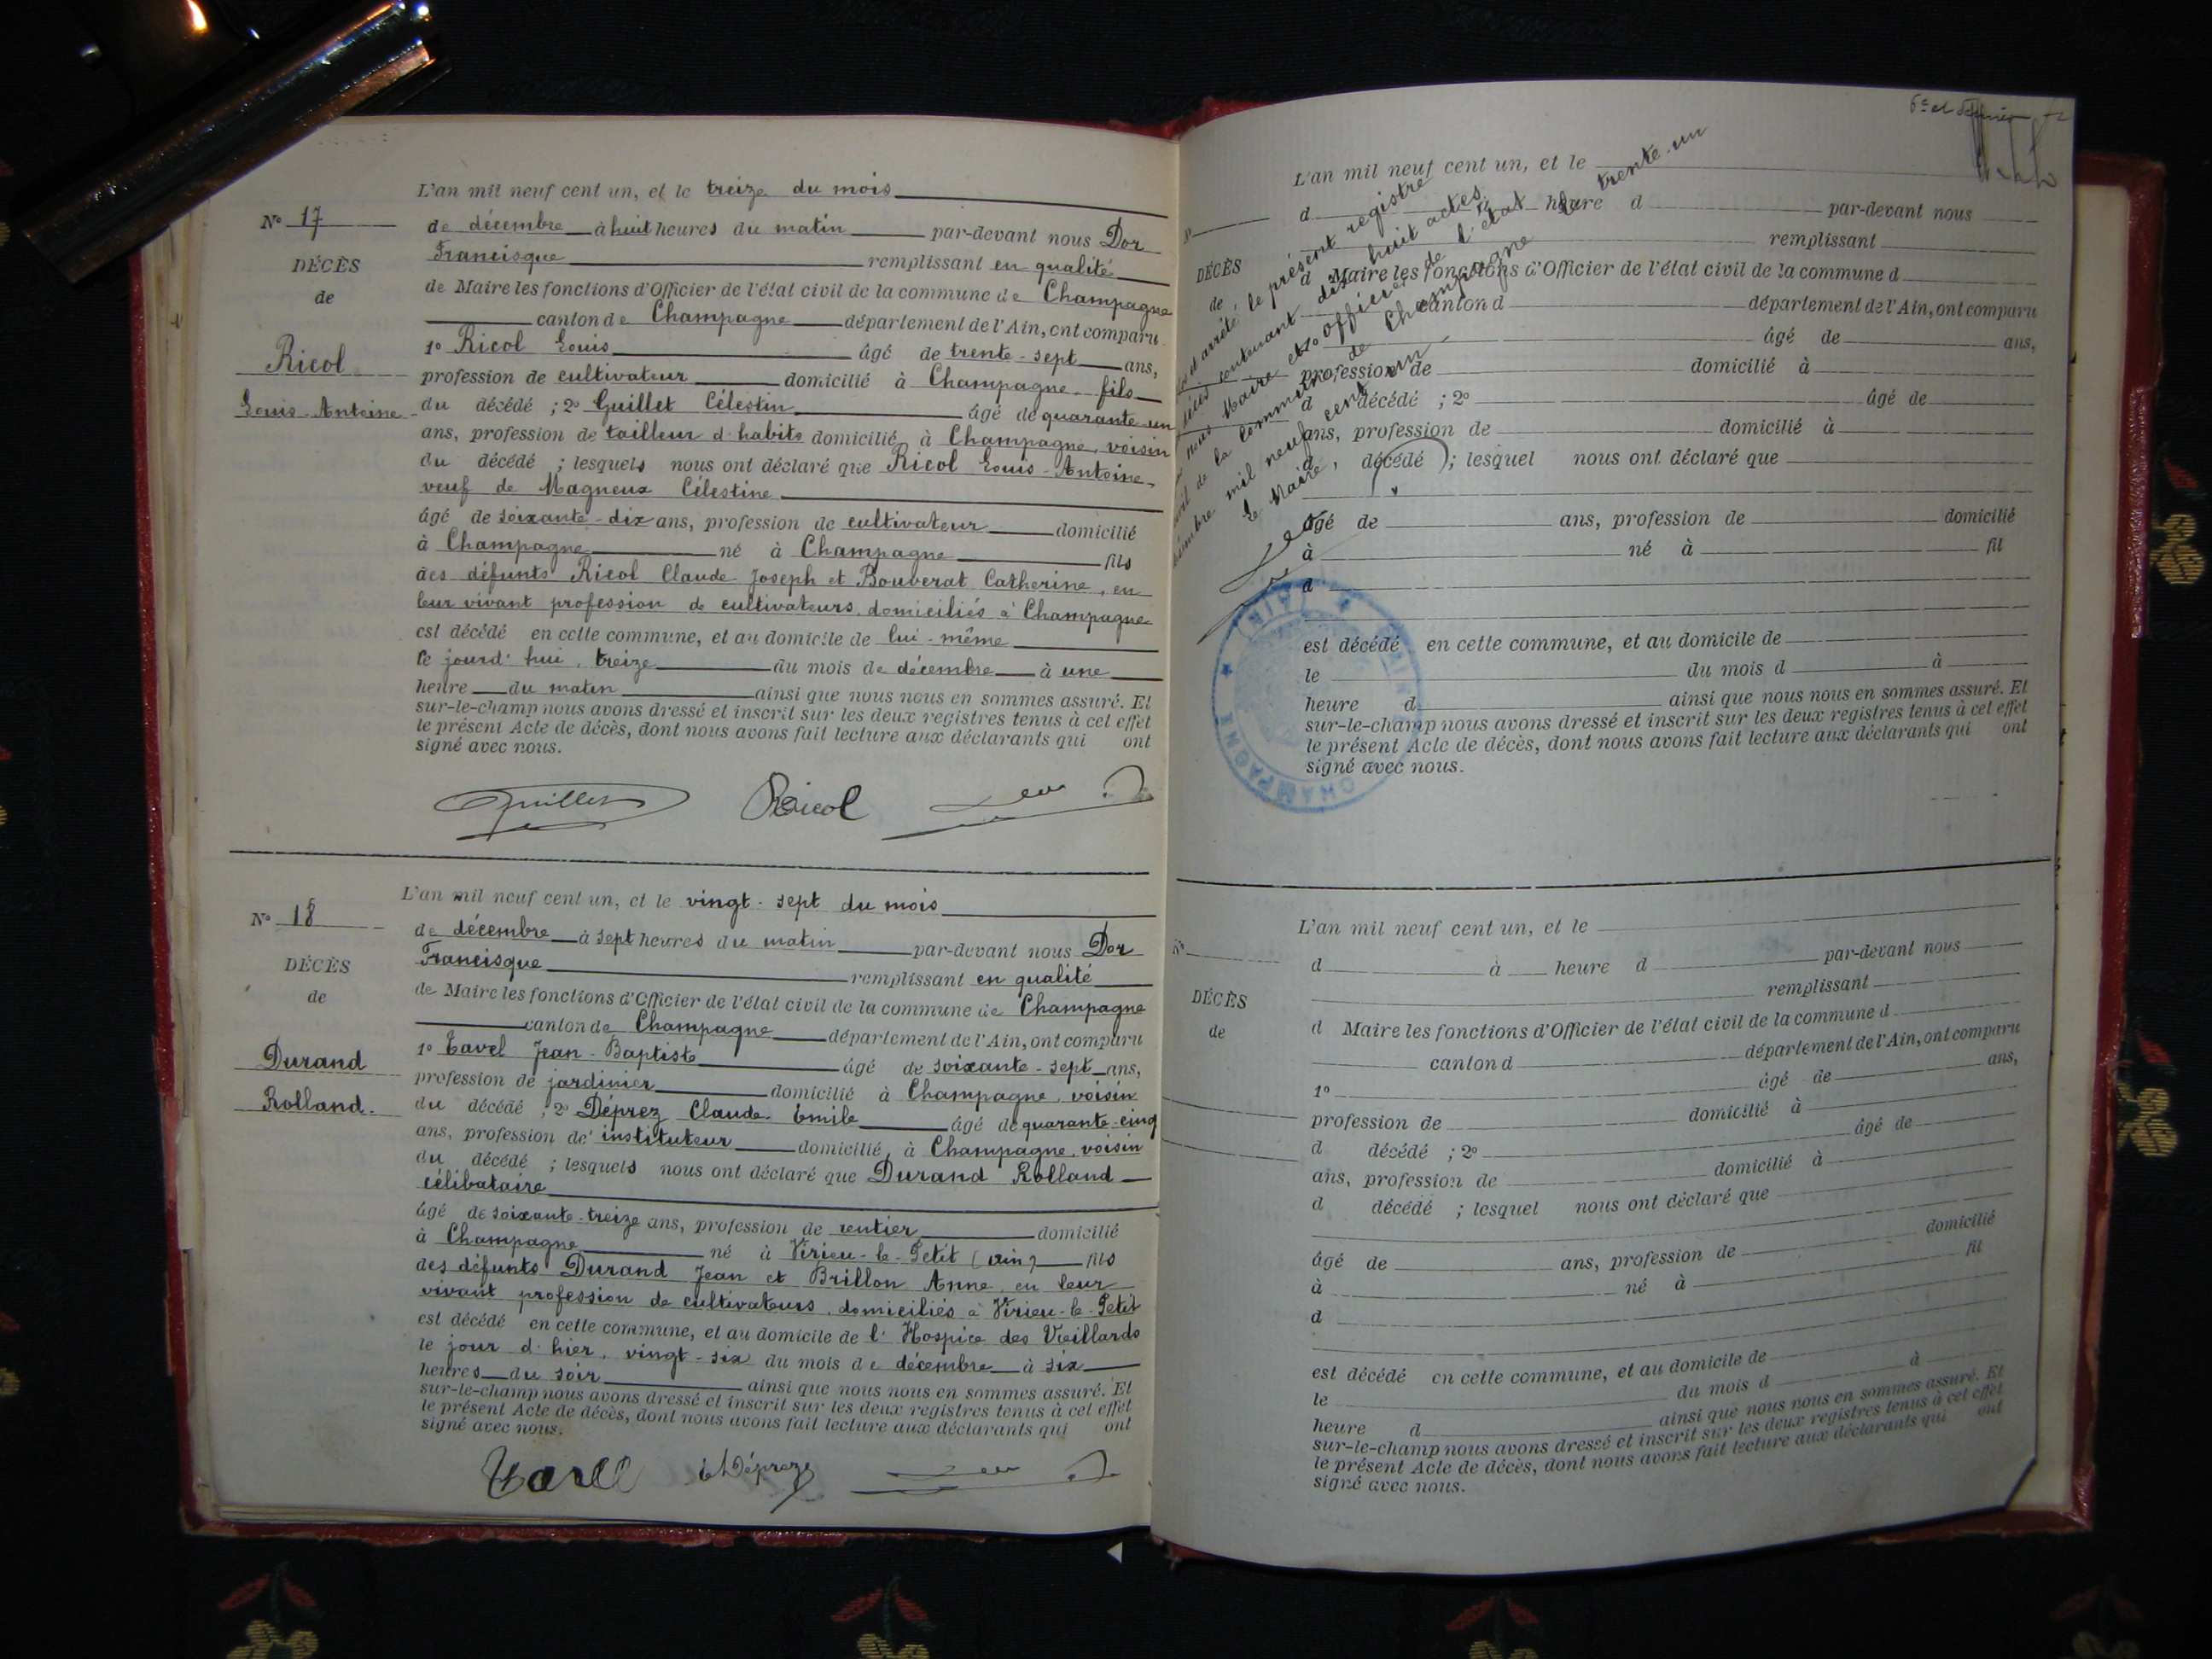 L'an mil neuf cent un, et le treize du mois
N° 17
de décembre à huit heures du matin par-devant nous Dor
Francisque remplissant en qualité
DÉCÈS
de Maire les fonctions d'Officier de l'état civil de la commune de Champagne
de
canton de Champagne département de l'Ain, ont comparu
1° Ricol Louis âgé de trente-sept ans,
Ricol
profession de cultivateur domicilié à Champagne, fils
Louis-Antoine
du décédé ; 2° Guillet Célestin âgé de quarante-un
ans, profession de tailleur d'habits domicilié à Champagne, voisin
du décédé ; lesquels nous ont déclaré que Ricol Louis-Antoine,
veuf de Magneux Célestine
âgé de soixante-dix ans, profession de cultivateur domicilié
à Champagne né à Champagne fils
des défunts Ricol Claude Joseph et Bouverat Catherine, en
leur vivant profession de cultivateurs, domiciliés à Champagne
est décédé en cette commune, et au domicile de lui-même
le jourd'hui, treize du mois de décembre à une
heure du matin ainsi que nous nous en sommes assuré. Et
sur-le-champ nous avons dressé et inscrit sur les deux registres tenus à cet effet
le présent Acte de décès, dont nous avons fait lecture aux déclarants qui ont
signé avec nous.
Guillet Ricol
L'an mil neuf cent un, et le vingt-sept du mois
N° 18
de décembre à sept heures du matin par-devant nous Dor
Francisque remplissant en qualité
DÉCÈS
de Maire les fonctions d'Officier de l'état civil de la commune de Champagne
de
canton de Champagne département de l'Ain, ont comparu
1° Tavel Jean-Baptiste âgé de soixante-sept ans,
Durand
profession de jardinier domicilié à Champagne, voisin
Rolland.
du décédé ; 2° Déprez Claude Émile âgé de quarante-cinq
ans, profession de instituteur domicilié à Champagne, voisin
du décédé ; lesquels nous ont déclaré que Durand Rolland
célibataire
âgé de soixante-treize ans, profession de rentier domicilié
à Champagne né à Virieu-le-Petit (ain) fils
des défunts Durand Jean et Brillon Anne, en leur
vivant profession de cultivateurs, domiciliés à Virieu-le-Petit
est décédé en cette commune, et au domicile de l'Hospice des Vieillards
le jour d'hier, vingt-six du mois de décembre à six
heures du soir ainsi que nous nous en sommes assuré. Et
sur-le-champ nous avons dressé et inscrit sur les deux registres tenus à cet effet
le présent Acte de décès, dont nous avons fait lecture aux déclarants qui ont
signé avec nous.
Tavel Déprez
L'an mil neuf cent un, et le
d à heure d par-devant nous
remplissant
DÉCÈS
d Maire les fonctions d'Officier de l'état civil de la commune d
de
canton d département de l'Ain, ont comparu
âgé de ans,
profession de domicilié à
d décédé ; 2° âgé de
ans, profession de domicilié à
d décédé ; lesquel nous ont déclaré que
âgé de ans, profession de domicilié
à né à fil
d
est décédé en cette commune, et au domicile de
le du mois d à
heure d ainsi que nous nous en sommes assuré. Et
sur-le-champ nous avons dressé et inscrit sur les deux registres tenus à cet effet
le présent Acte de décès, dont nous avons fait lecture aux déclarants qui ont
signé avec nous.
arrêté le présent registre
contenant dix huit actes
nous Maire et officier de l'état
civil de la commune de Champagne le trente-un
mil neuf cent un
Le Maire,
CHAMPAGNE (AIN)
L'an mil neuf cent un, et le
N°
d à heure d par-devant nous
remplissant
DÉCÈS
d Maire les fonctions d'Officier de l'état civil de la commune d
de
canton d département de l'Ain, ont comparu
1° âgé de ans,
profession de domicilié à
d décédé ; 2° âgé de
ans, profession de domicilié à
d décédé ; lesquel nous ont déclaré que
âgé de ans, profession de domicilié
à né à fil
d
est décédé en cette commune, et au domicile de
le du mois d à
heure d ainsi que nous nous en sommes assuré. Et
sur-le-champ nous avons dressé et inscrit sur les deux registres tenus à cet effet
le présent Acte de décès, dont nous avons fait lecture aux déclarants qui ont
signé avec nous.